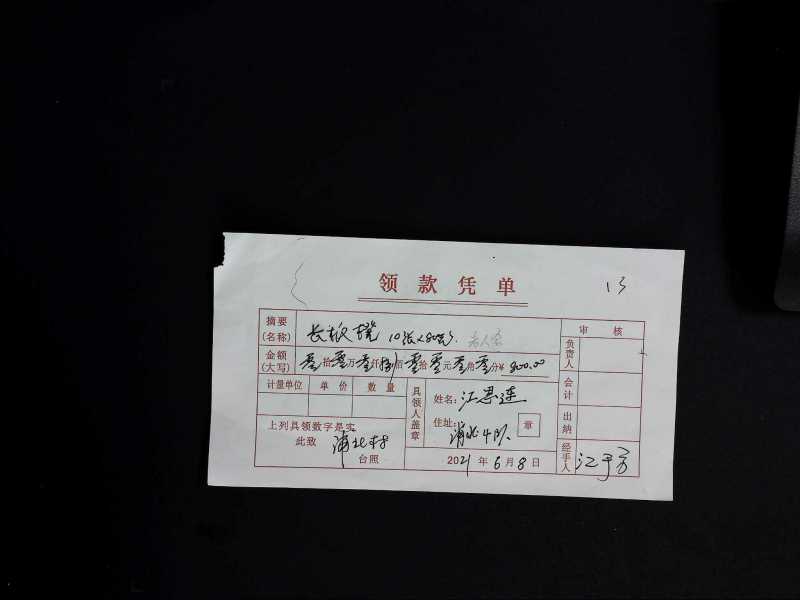 领款凭单
13
摘要
(名称)
长板凳 10张×80元
审 核
金额
(大写)
零拾零万零仟捌佰零拾零元零角零分¥ 800.00
负责人
计量单位 单价 数量
具领人盖章
姓名: 江思连
会计
住址: 浦北4队
章
出纳
上列具领数字是实
此致 浦北村
台照
2021年6月8日
经手人